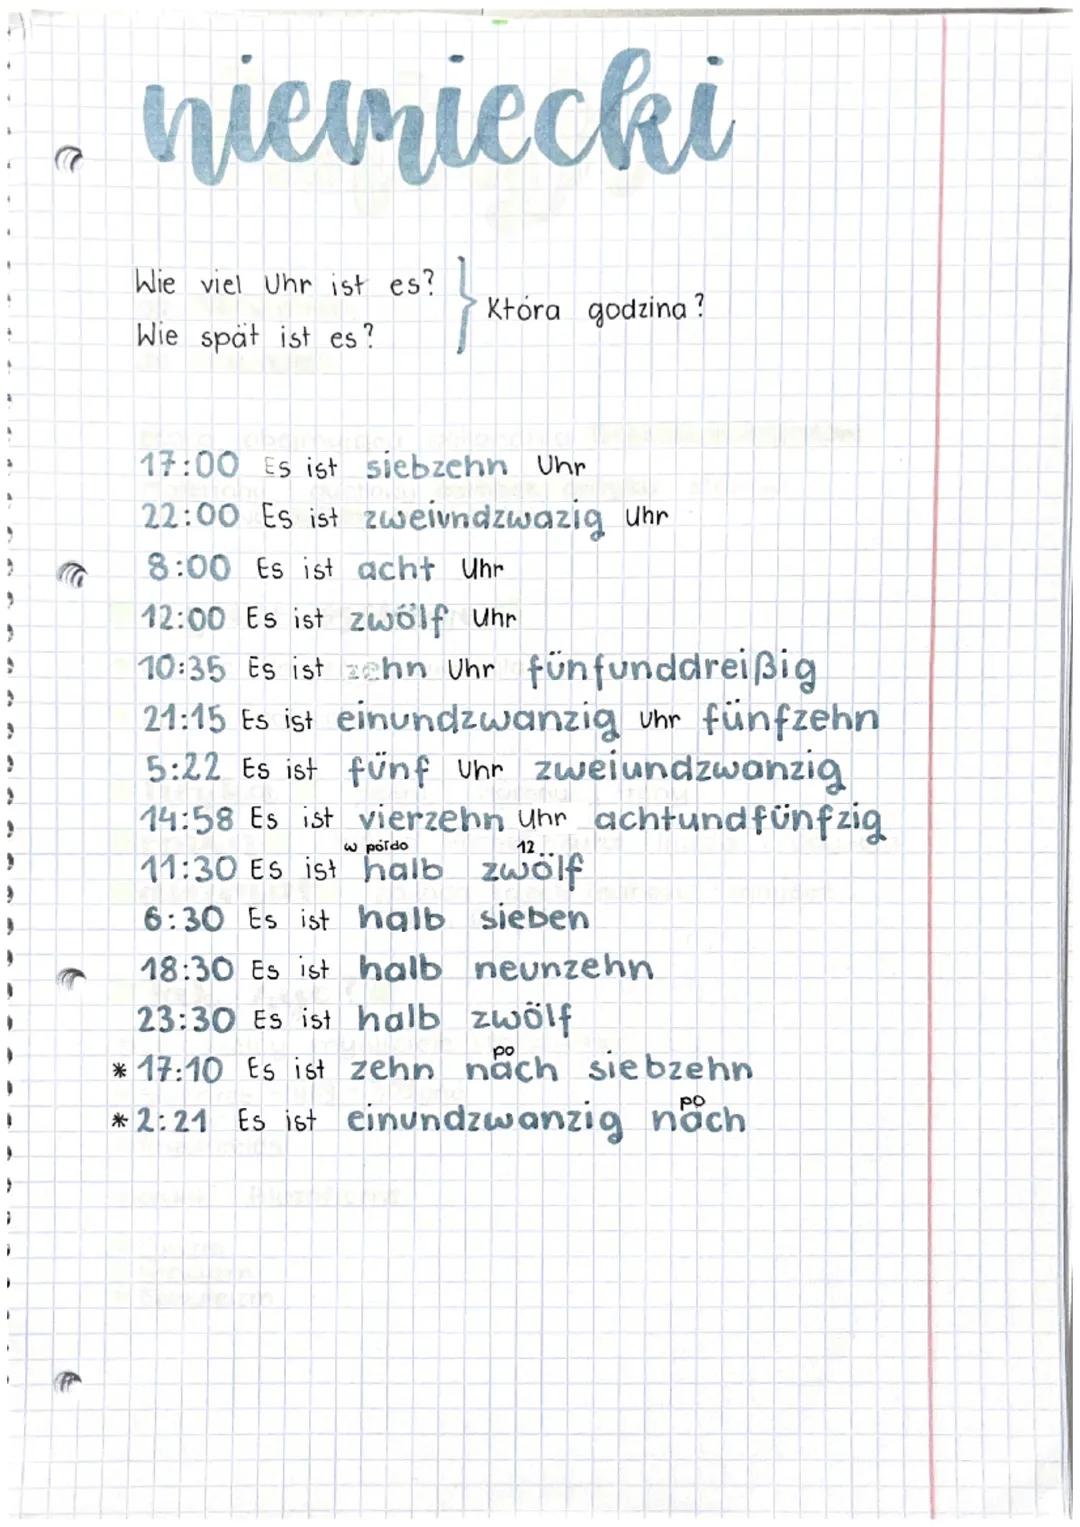 niemiecki
Wie viel Uhr ist es?
Wie spät ist es?
Która godzina?
17:00 Es ist siebzehn Uhr
22:00 Es ist zweiundzwazig Uhr
8:00 Es ist acht Uhr
12:00 Es ist zwölf Uhr
10:35 Es ist zehn Uhr fünfunddreißig
21:15 Es ist einundzwanzig Uhr fünfzehn
5:22 Es ist fünf Uhr zweiundzwanzig
14:58 Es ist vierzehn Uhr achtundfünfzig
w pół do 12
11:30 Es ist halb zwölf
6:30 Es ist halb sieben
18:30 Es ist halb neunzehn
23:30 Es ist halb zwölf
po
* 17:10 Es ist zehn nach siebzehn
po
* 2:21 Es ist einundzwanzig nach